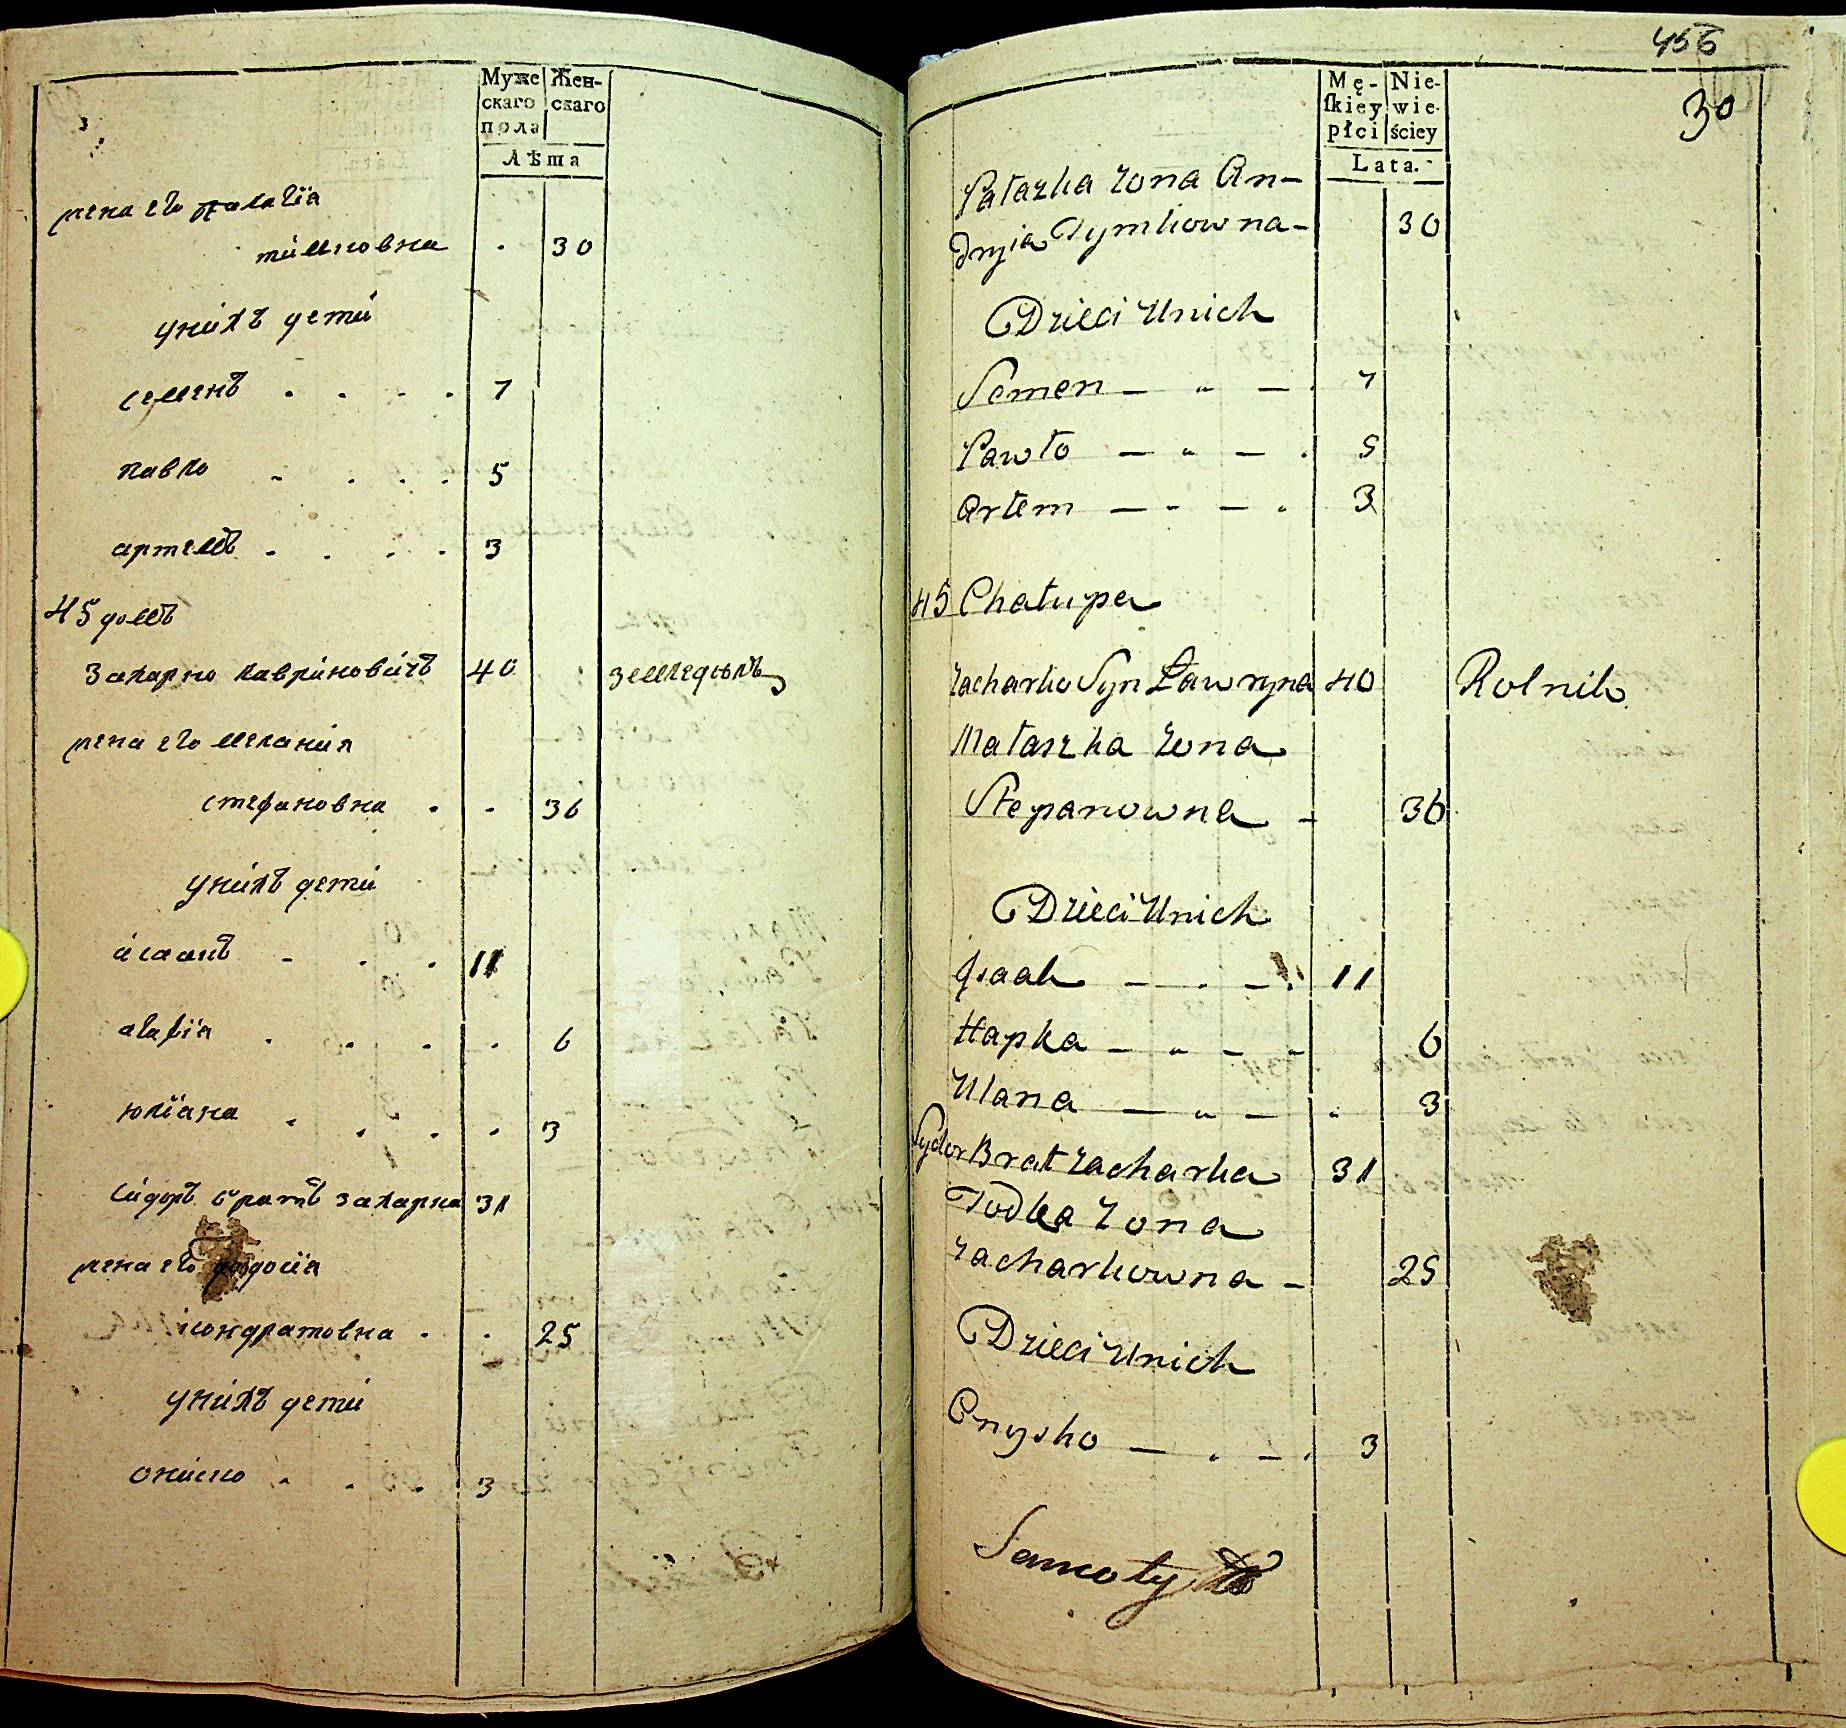 Муже Жен-
скаго скаго
пола
Лѣта
жена его пелагія
тимковна . 30
унихъ дети
семенъ . . . . 7
павло - . . . 5
артемъ - . . . 3
45 домъ
Захарко лавриновичъ 40 земледѣлъ
жена его меланія
стефановна . - 36
унихъ дети
исаакъ - . . 11
агафія . . . . 6
юліана . . . . 3
сидоръ братъ захарка 31
жена его феодосія
кондратовна . . 25
унихъ дети
ониско . . . 3
456
30
Mę- Nie-
ſkiey wie-
płci ściey
Lata.
Pałazka żona An-
dryia Tymkowna - 30
Dzieci Unich
Semen — „ — . 7
Pawło — „ — . 5
Artem — - — . 3
45 Chałupa
Zacharko Syn Ławryna 40 Rolnik
Małaszka żona
Stepanowna - 36
Dzieci Unich
Jsaak — . — . 11
Hapka — „ — - 6
Ulana — „ — . 3
Sydor Brat Zacharka 31
Todka żona
Zacharkowna - 25
Dzieci Unich
Onysko — . — . 3